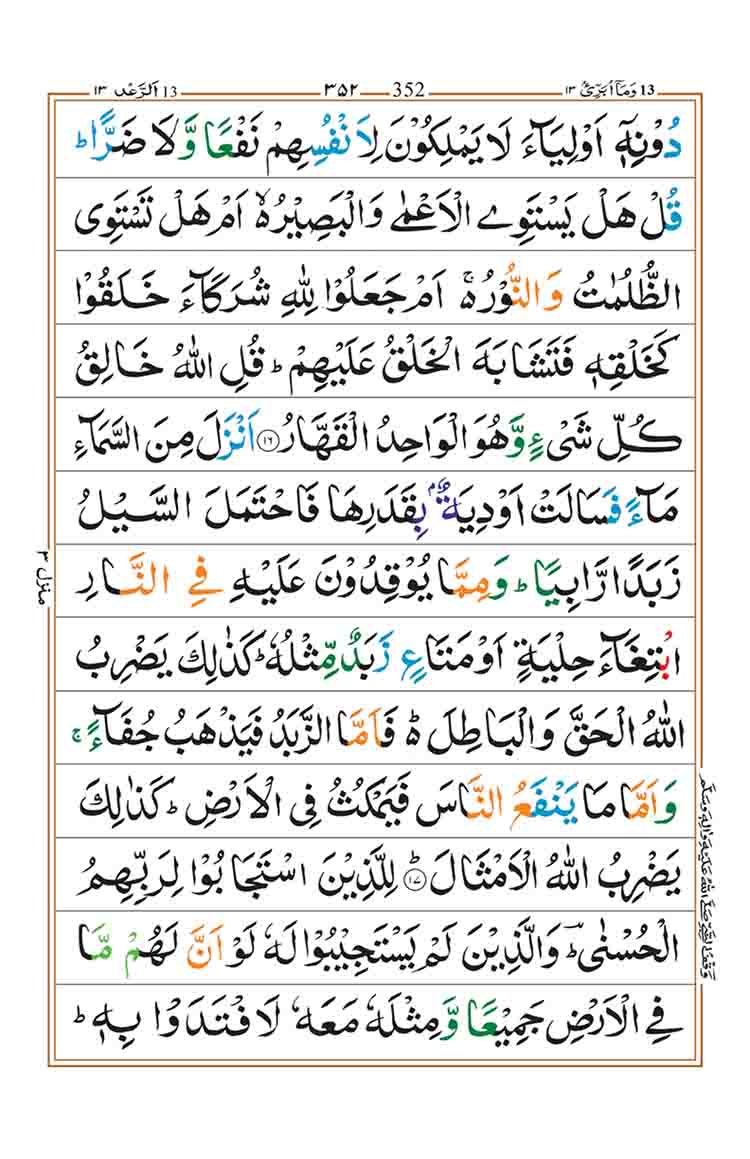 13 اَلرَّعْد ١٣
٣٥٢ 352
13 وَمَاۤ اُبَرِّئُ ١٣
دُوْنِهٖۤ اَوْلِيَآءَ لَا يَمْلِكُوْنَ لِاَنْفُسِهِمْ نَفْعًا وَّلَا ضَرًّا ؕ
قُلْ هَلْ يَسْتَوِي الْاَعْمٰى وَالْبَصِيْرُ ۙ اَمْ هَلْ تَسْتَوِى
الظُّلُمٰتُ وَالنُّوْرُ ۚ اَمْ جَعَلُوْا لِلّٰهِ شُرَكَآءَ خَلَقُوْا
كَخَلْقِهٖ فَتَشَابَهَ الْخَلْقُ عَلَيْهِمْ ؕ قُلِ اللّٰهُ خَالِقُ
كُلِّ شَىْءٍ وَّهُوَ الْوَاحِدُ الْقَهَّارُ ۝١٦ اَنْزَلَ مِنَ السَّمَآءِ
مَآءً فَسَالَتْ اَوْدِيَةٌۢ بِقَدَرِهَا فَاحْتَمَلَ السَّيْلُ
زَبَدًا رَّابِيًا ؕ وَمِمَّا يُوْقِدُوْنَ عَلَيْهِ فِي النَّارِ
ابْتِغَآءَ حِلْيَةٍ اَوْ مَتَاعٍ زَبَدٌ مِّثْلُهٗ ؕ كَذٰلِكَ يَضْرِبُ
اللّٰهُ الْحَقَّ وَالْبَاطِلَ ؕ فَاَمَّا الزَّبَدُ فَيَذْهَبُ جُفَآءً ۚ
وَاَمَّا مَا يَنْفَعُ النَّاسَ فَيَمْكُثُ فِى الْاَرْضِ ؕ كَذٰلِكَ
يَضْرِبُ اللّٰهُ الْاَمْثَالَ ؕ ۝١٧ لِلَّذِيْنَ اسْتَجَابُوْا لِرَبِّهِمُ
الْحُسْنٰى ؕ وَالَّذِيْنَ لَمْ يَسْتَجِيْبُوْا لَهٗ لَوْ اَنَّ لَهُمْ مَّا
فِي الْاَرْضِ جَمِيْعًا وَّمِثْلَهٗ مَعَهٗ لَافْتَدَوْا بِهٖ ؕ
منزل ٣
وقف النبي صلى الله عليه واله وسلم